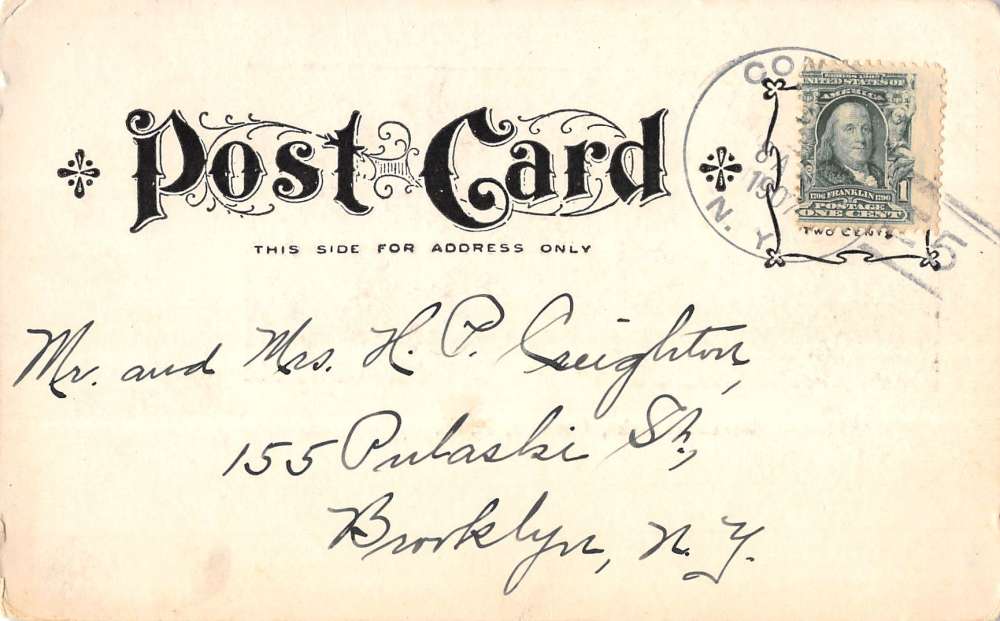 Post Card
THIS SIDE FOR ADDRESS ONLY
CON
1907
N. Y.
UNITED STATES OF
AMERICA
1706 FRANKLIN 1790
1
POSTAGE
ONE CENT
TWO CENTS
5
Mr. and Mrs. H. P. Creighton,
155 Pulaski St.,
Brooklyn, N. Y.